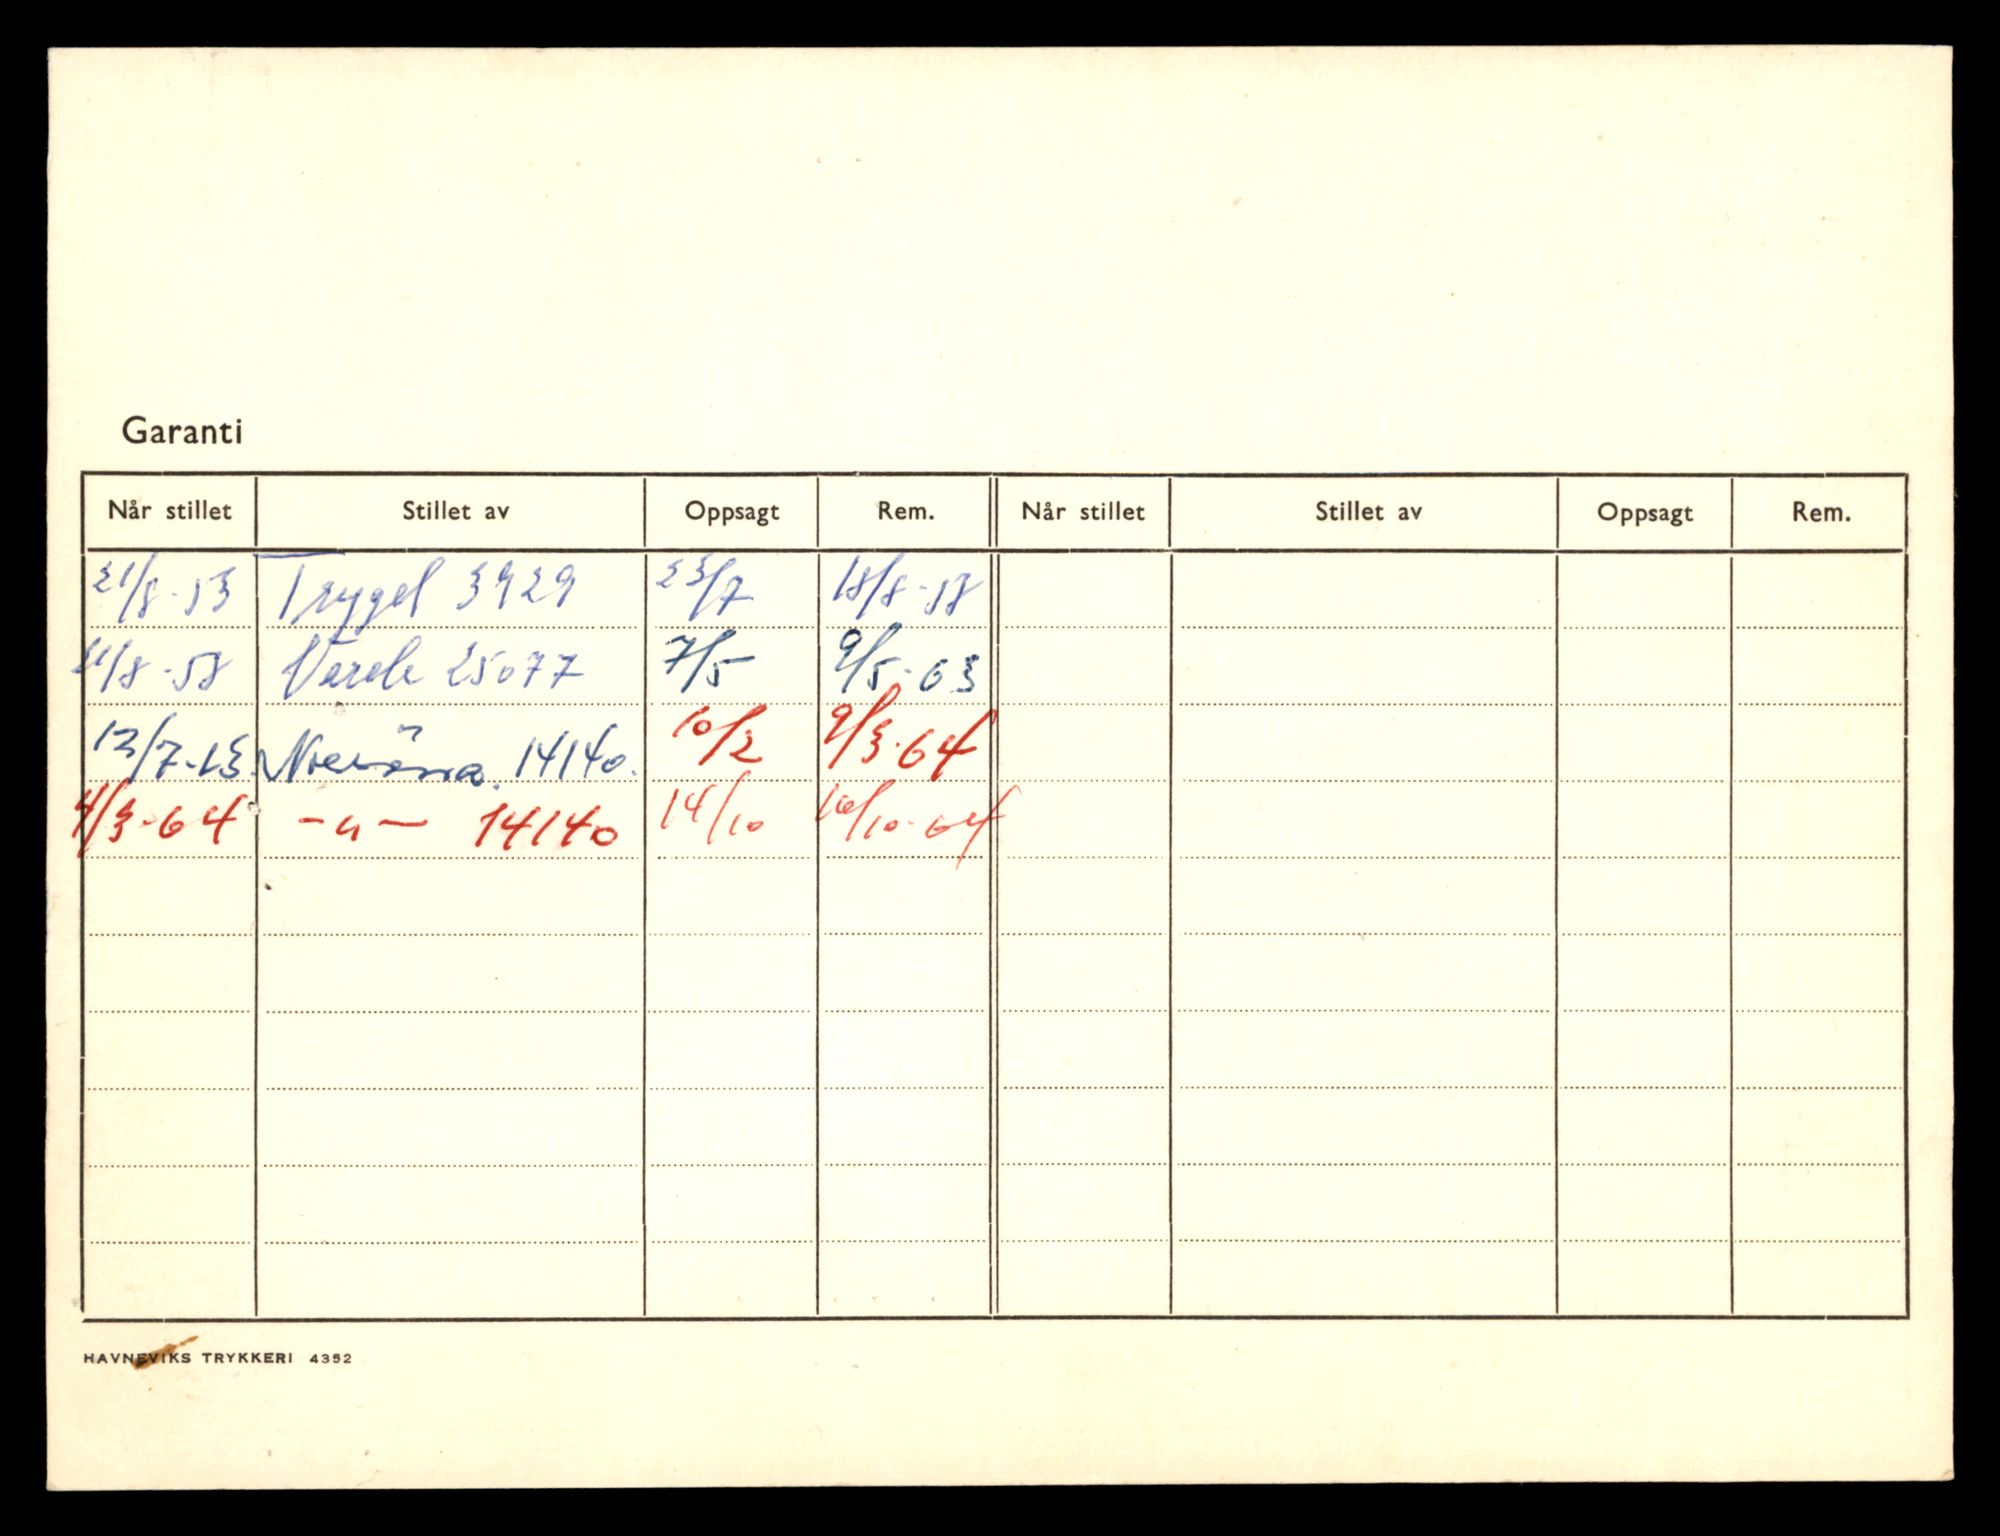 Garanti
Når stillet Stillet av Oppsagt Rem. Når stillet Stillet av Oppsagt Rem.
21/8-53 Trygd 3929 23/7 18/8-58
11/8-58 Varde 25077 7/5 9/5-63
12/7-63. 14140. 10/2 9/3-64
4/3-64 -"- 14140 14/10 16/10-64
HAVNEVIKS TRYKKERI 4352